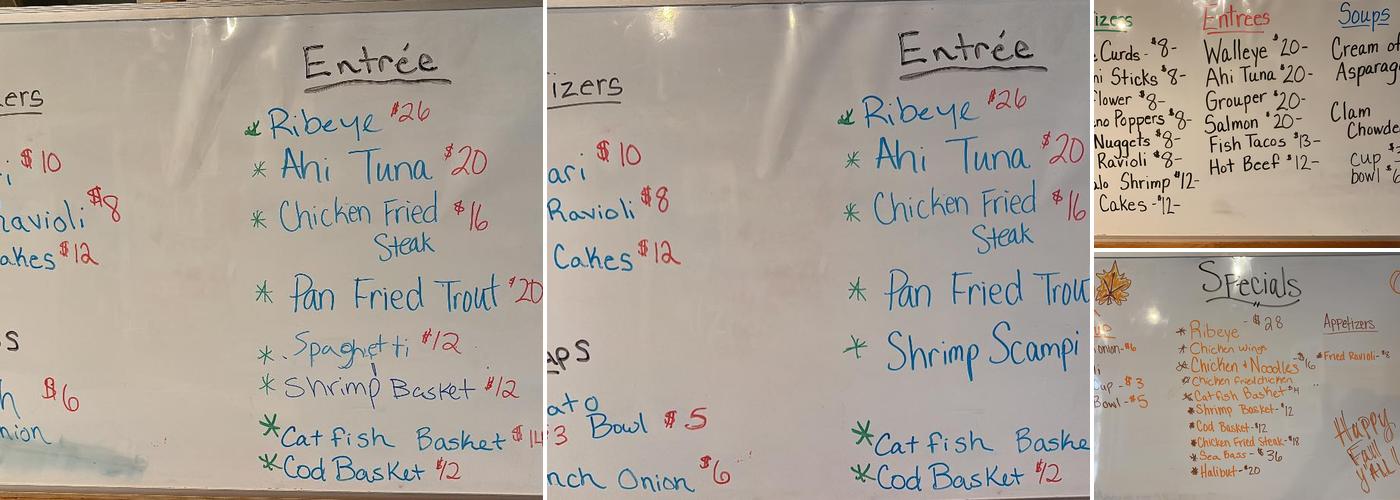 ers
$10
Ravioli $8
akes $12
s
$6
nion
Entrée
* Ribeye $26
* Ahi Tuna $20
* Chicken Fried $16
Steak
* Pan Fried Trout $20
*. Spaghetti $12
* Shrimp Basket $12
* Catfish Basket $14
* Cod Basket $12
izers
ari $10
Ravioli $8
Cakes $12
ups
ato
3 Bowl $5
nch Onion $6
Entrée
* Ribeye $26
* Ahi Tuna $20
* Chicken Fried $16
Steak
* Pan Fried Trou
* Shrimp Scampi
* Catfish Baske
* Cod Basket $12
izers
Curds - $8-
ni Sticks $8-
flower $8-
no Poppers $8-
Nuggets $8-
Ravioli $8-
alo Shrimp $12-
Cakes - $12-
Entrées
Walleye $20-
Ahi Tuna $20-
Grouper $20-
Salmon $20-
Fish Tacos $13-
Hot Beef $12-
Soups
Cream of
Asparag
Clam
Chowde
cup $3
bowl $6
Specials
onion-$6
up - $3
Bowl-$5
* Ribeye - $28
* Chicken wings
* Chicken & Noodles -$16
* Chicken fried chicken
* Catfish Basket
* Shrimp Basket-$12
* Cod Basket-$12
* Chicken Fried Steak-$18
* Sea Bass - $36
* Halibut-$20
Appetizers
* Fried Ravioli-$8
Happy
Fall
Y'ALL!